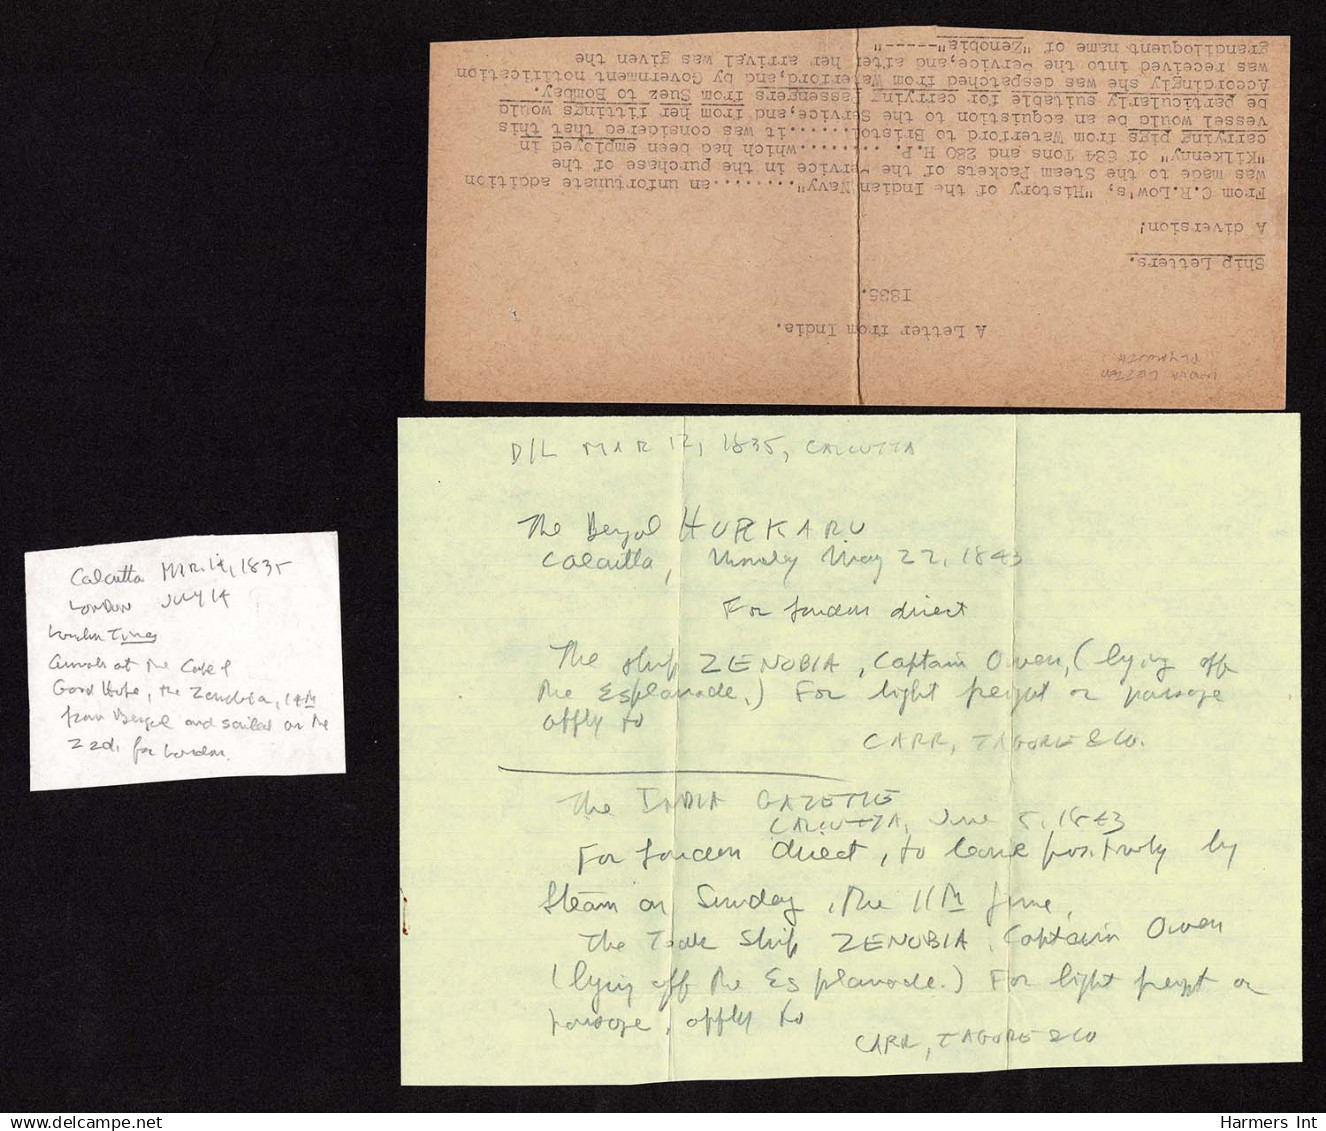 INDIA LETTER
PLYMOUTH
A Letter from India.
1835.
Ship Letters.
A diversion!
From C.R.Low's, "History of the Indian Navy".........an unfortunate addition
was made to the Steam Packets of the Service in the purchase of the
"Kilkenny" of 684 Tons and 280 H.P. .........which had been employed in
carrying pigs from Waterford to Bristol......it was considered that this
vessel would be an acquistion to the Service,and from her fittings would
be particularly suitable for carrying Passengers from Suez to Bombay.
Accordingly she was despatched from Waterford,and by Government notification
was received into the Service,and after her arrival was given the
grandiloquent name of "Zenobia"-----"
D/L MAR 12, 1835, CALCUTTA
The Bengal HURKARU
Calcutta, Monday May 22, 1843
For London direct
The ship ZENOBIA, Captain Owen, (lying off
the Esplanade.) For light freight or passage
apply to
CARR, TAGORE & CO.
The INDIA GAZETTE
CALCUTTA, June 5, 1843
For London direct, to leave positively by
Steam on Sunday, the 11th June,
The Teak Ship ZENOBIA, Captain Owen
(lying off the Esplanade.) For light freight or
passage, apply to
CARR, TAGORE & CO
Calcutta MAR. 12, 1835
LONDON JULY 14
London Times
Arrivals at the Cape of
Good Hope, the Zenobia, 14th
from Bengal and sailed on the
22d. for London.
Harmers Int